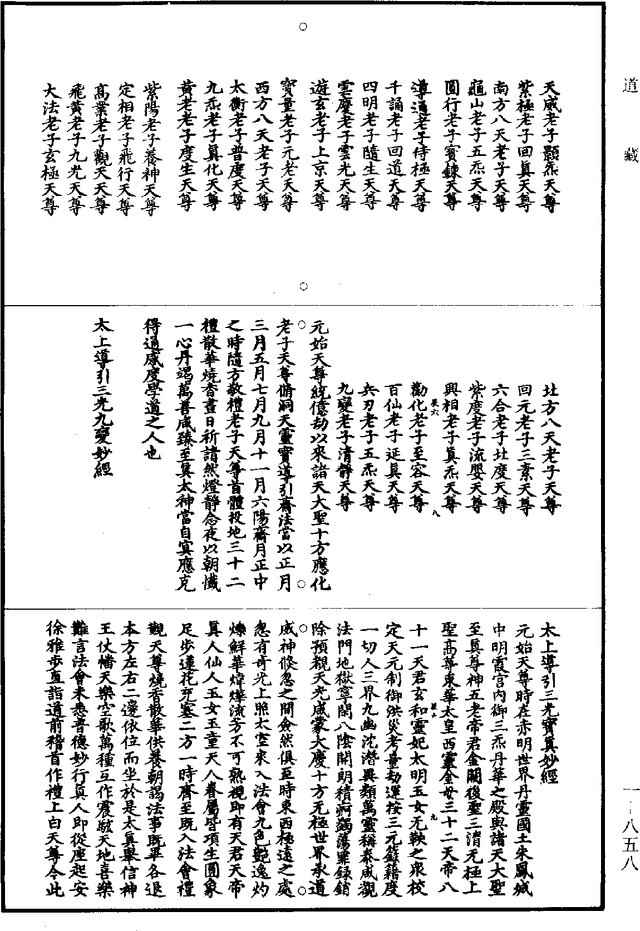 道藏
天威老子顥炁天尊
紫極老子回真天尊
南方八天老子天尊
龜山老子五炁天尊
圓行老子寳錄天尊
導通老子侍極天尊
千誦老子回道天尊
四明老子隨生天尊
雲慶老子雲光天尊
遊玄老子上京天尊
寳量老子元老天尊
西方八天老子天尊
太衡老子普度天尊
九炁老子真化天尊
黄老老子度生天尊
紫陽老子養神天尊
定相老子飛行天尊
髙業老子觀天天尊
飛黄老子九光天尊
大法老子玄極天尊
北方八天老子天尊
回元老子三素天尊
六合老子北度天尊
紫度老子流嬰天尊
興相老子真炁天尊
勸化老子至容天尊
百仙老子延真天尊
兵刃老子五炁天尊
九變老子清静天尊
元始天尊統億劫以來諸天大聖十方應化
老子天尊脩洞天靈寳導引齋法當以正月
三月五月七月九月十一月六陽齋月正中
之時隨方敬禮老子天尊首體投地三十二
禮散華燒香晝日祈請然燈静念夜以朝懺
一心丹竭萬善咸臻至真太神當自冥應克
得通感度學道之人也
太上導引三光九變妙經
太上導引三光寳真妙經
元始天尊時在赤明世界丹靈國土朱鳳城
中明霞宫内御三炁丹華之殿與諸天大聖
至真尊神五老帝君金闕後聖三清元極上
聖髙尊東華太皇西靈金母三十二天帝八
十一天君玄和靈妃太明玉女无鞅之衆校
定天元制御洪災考量劫運按三元錄籍度
一切人三界九幽沈潜異類萬靈稱泰咸觀
法門地獄寧閑八陰開朗積痾蠲蕩罪録銷
除預觀天光咸蒙大慶十方无極世界承道
威神倏忽之間僉然俱至時東西極遠之處
忽有奇光上照太空來入法會九色艷逸灼
爍鮮華煒燁流芳不可熟視即有天君天帝
真人仙人玉女玉童天人眷屬皆項生圓象
足步蓮花充塞二方一時齊至既入法會禮
觀天尊燒香散華供養朝謁法事既畢各退
本方左右二邊依位而坐於是太真舉信神
王仗幡天樂空歌萬種互作震撼天地喜樂
難言法會来悉普穗妙行真人即從座起安
徐雅步直詣道前稽首作禮上白天尊今此
一-八五八